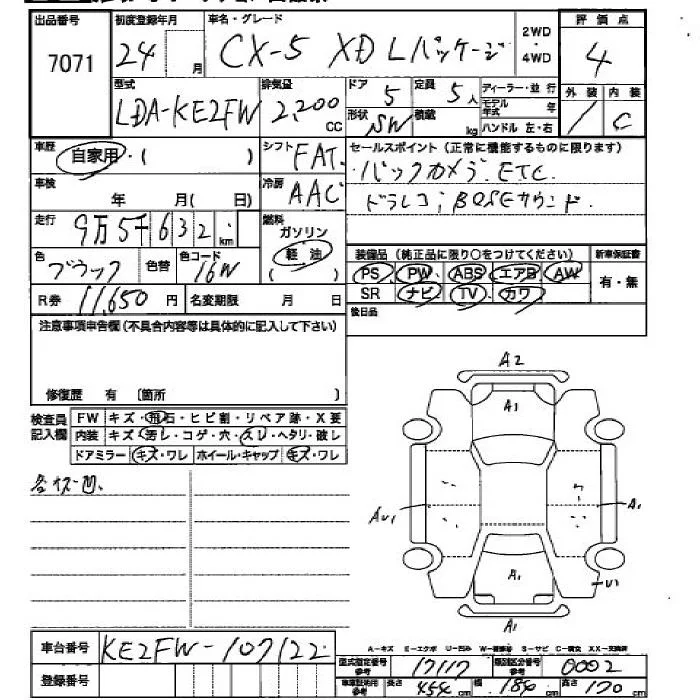 出品番号 初度登録年月 車名・グレード 2WD・4WD 評価点
7071 24 月 CX-5 XD Lパッケージ 4
型式 排気量 ドア 定員 ディーラー・並行 外装 内装
LDA-KE2FW 2,200 CC 5 5人 モデル年式 年 / C
形状 SW 積載 kg ハンドル 左・右
車歴 自家用・( ) シフト FAT セールスポイント(正常に機能するものに限ります)
車検 年 月( 日) 冷房 AAC バックカメラ ETC
ドラレコ BOSEサウンド
走行 9万5千632 km 燃料 ガソリン 軽油 ( )
色 ブラック 色替 色コード 16W
装備品(純正品に限り○をつけてください) 新車保証書
PS PW ABS エアB AW 有・無
R券 11,650円 名変期限 月 日 SR ナビ TV カワ
注意事項申告欄(不具合内容等は具体的に記入して下さい) 後日品
修復歴 有 〔箇所 〕
検査員記入欄 FW キズ・飛石・ヒビ割・リペア跡・X要
内装 キズ・汚レ・コゲ・穴・スレ・ヘタリ・破レ
ドアミラー キズ・ワレ ホイール・キャップ キズ・ワレ
各キズ凹
A2
A1
A1
A1
A1
車台番号 KE2FW-107122
A-キズ E-エクボ U-凹ミ S-サビ
登録番号 型式指定番号参考 17117 類別区分番号参考 0002
長さ 454 cm 幅 184 cm 高さ 170 cm